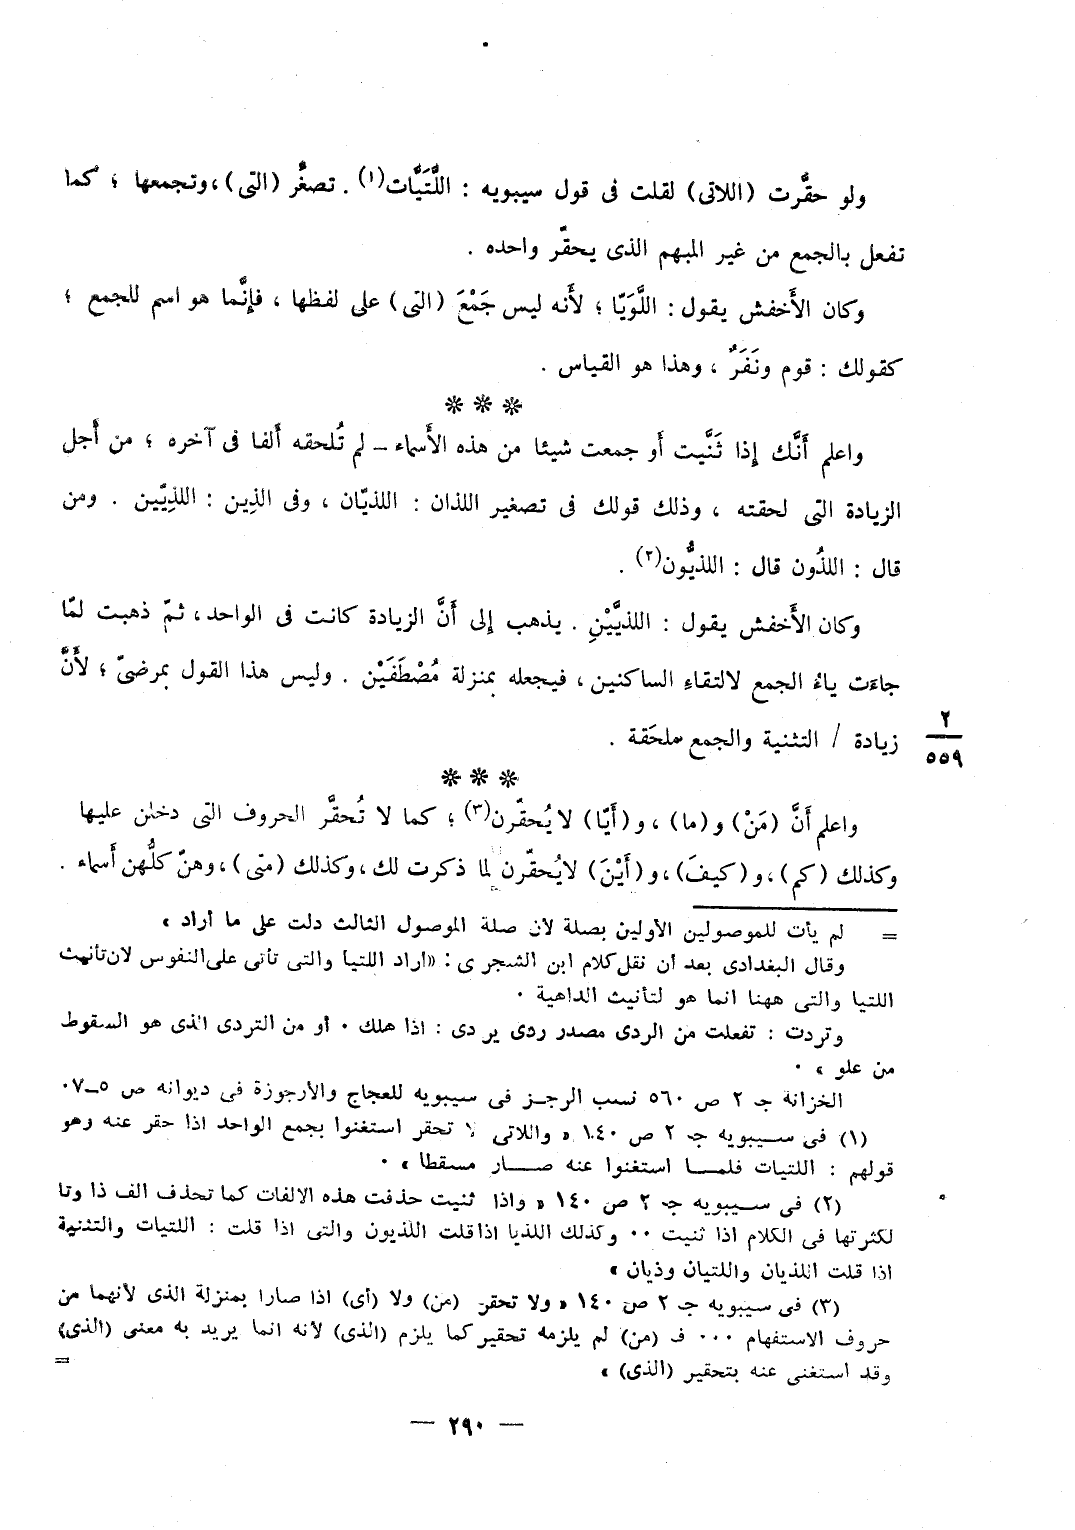 ولو حقَّرت (اللاتى) لقلت فى قول سيبويه : اللَّتَيَّات(١) . تصغَّر (التى) ، وتجمعها ؛ كما
تفعل بالجمع من غير المبهم الذى يحقّر واحده .
وكان الأَخفش يقول : اللَّوَيّا ؛ لأَنه ليس جَمْعَ (التى) على لفظها ، فإِنَّما هو اسم للجمع ؛
كقولك : قوم ونَفَرٌ ، وهذا هو القياس .
❊ ❊ ❊
واعلم أَنَّك إِذا ثَنَّيت أَو جمعت شيئا من هذه الأَسماء – لم تُلحقه أَلفا فى آخره ؛ من أَجل
الزيادة التى لحقته ، وذلك قولك فى تصغير اللذان : اللذيّان ، وفى الذِين : اللذِيّين . ومن
قال : اللذُون قال : اللذيُّون(٢) .
وكان الأَخفش يقول : اللذيَّيْنِ . يذهب إِلى أَنَّ الزيادة كانت فى الواحد ، ثمّ ذهبت لمّا
جاءَت ياءُ الجمع لالتقاء الساكنين ، فيجعله بمنزلة مُصْطَفَيْن . وليس هذا القول بمرضىّ ؛ لأَنَّ
زيادة / التثنية والجمع ملحَقة .
٢
٥٥٩
❊ ❊ ❊
واعلم أَنَّ (مَنْ) و(ما) ، و(أَيّا) لا يُحقّرن(٣) ؛ كما لا تُحقَّر الحروف التى دخلن عليها
وكذلك (كم) ، و(كيفَ) ، و(أَيْنَ) لايُحقّرن لما ذكرت لك ، وكذلك (متى) ، وهنّ كلُّهن أَسماء .
= لم يأت للموصولين الأولين بصلة لان صلة الموصول الثالث دلت على ما أراد »
وقال البغدادى بعد أن نقل كلام ابن الشجرى : «أراد اللتيا والتى تأتى على النفوس لان تأنيث
اللتيا والتى ههنا انما هو لتأنيث الداهية ٠
وتردت : تفعلت من الردى مصدر ردى يردى : اذا هلك ٠ أو من التردى الذى هو السقوط
من علو » ٠
الخزانة جـ ٢ ص ٥٦٠ نسب الرجـز فى سيبويه للعجاج والأرجوزة فى ديوانه ص ٥ــ٧٠
(١) فى سـيبويه جـ ٢ ص ١٤٠ « واللاتى لا تحقر استغنوا بجمع الواحد اذا حقر عنه وهو
قولهم : اللتيات فلمــا استغنوا عنه صــار مسقطا » ٠
(٢) فى سـيبويه جـ ٢ ص ١٤٠ « واذا ثنيت حذفت هذه الالفات كما تحذف الف ذا وتا
لكثرتها فى الكلام اذا ثنيت ٠٠ وكذلك اللذيا اذا قلت اللذيون والتى اذا قلت : اللتيات والتثنية
اذا قلت اللذيان واللتيان وذيان »
(٣) فى سيبويه جـ ٢ ص ١٤٠ « ولا تحقر (من) ولا (أى) اذا صارا بمنزلة الذى لأنهما من
حروف الاستفهام ٠٠٠ فـ (من) لم يلزمه تحقير كما يلزم (الذى) لأنه انما يريد به معنى (الذى)
وقد استغنى عنه بتحقير (الذى) »
=
— ٢٩٠ —